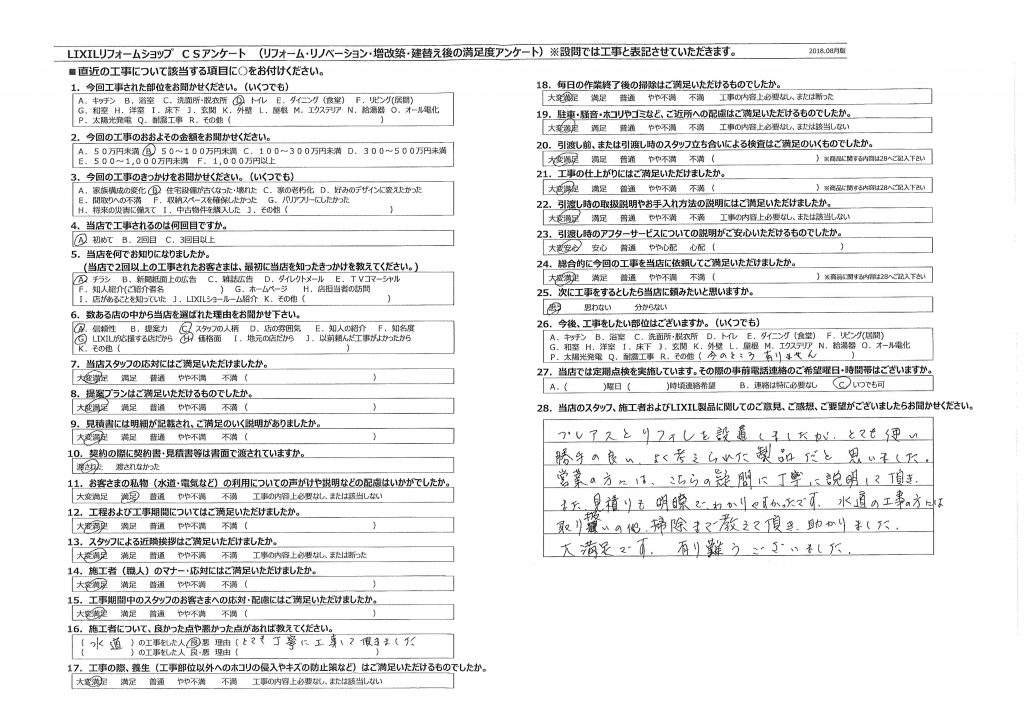 LIXILリフォームショップ CSアンケート （リフォーム・リノベーション・増改築・建替え後の満足度アンケート）※設問では工事と表記させていただきます。
2018.08月版
■直近の工事について該当する項目に○をお付けください。
1．今回工事された部位をお聞かせください。（いくつでも）
A．キッチン B．浴室 C．洗面所・脱衣所 D．トイレ E．ダイニング（食堂） F．リビング(居間)
G．和室 H．洋室 I．床下 J．玄関 K．外壁 L．屋根 M．エクステリア N．給湯器 O．オール電化
P．太陽光発電 Q．耐震工事 R．その他（ ）
2．今回の工事のおおよその金額をお聞かせください。
A．50万円未満 B．50～100万円未満 C．100～300万円未満 D．300～500万円未満
E．500～1,000万円未満 F．1,000万円以上
3．今回の工事のきっかけをお聞かせください。（いくつでも）
A．家族構成の変化 B．住宅設備が古くなった・壊れた C．家の老朽化 D．好みのデザインに変えたかった
E．間取りへの不満 F．収納スペースを確保したかった G．バリアフリーにしたかった
H．将来の災害に備えて I．中古物件を購入した J．その他（ ）
4．当店で工事されるのは何回目ですか。
A．初めて B．2回目 C．3回目以上
5．当店を何でお知りになりましたか。
(当店で2回以上の工事されたお客さまは、最初に当店を知ったきっかけを教えてください。)
A．チラシ B．新聞紙面上の広告 C．雑誌広告 D．ダイレクトメール E．TVコマーシャル
F．知人紹介(ご紹介者名 ) G．ホームページ H．店担当者の訪問
I．店があることを知っていた J．LIXILショールーム紹介 K．その他（ ）
6．数ある店の中から当店を選ばれた理由をお聞かせ下さい。
A．信頼性 B．提案力 C．スタッフの人柄 D．店の雰囲気 E．知人の紹介 F．知名度
G．LIXILが応援する店だから H．価格面 I．地元の店だから J．以前頼んだ工事がよかったから
K．その他（ ）
7．当店スタッフの応対にはご満足いただけましたか。
大変満足 満足 普通 やや不満 不満（ ）
8．提案プランはご満足いただけるものでしたか。
大変満足 満足 普通 やや不満 不満（ ）
9．見積書には明細が記載され、ご満足のいく説明がありましたか。
大変満足 満足 普通 やや不満 不満（ ）
10．契約の際に契約書・見積書等は書面で渡されていますか。
渡された 渡されなかった
11．お客さまの私物（水道・電気など）の利用についての声がけや説明などの配慮はいかがでしたか。
大変満足 満足 普通 やや不満 不満 工事の内容上必要なし、または該当しない
12．工程および工事期間についてはご満足いただけましたか。
大変満足 満足 普通 やや不満 不満（ ）
13．スタッフによる近隣挨拶はご満足いただけましたか。
大変満足 満足 普通 やや不満 不満 工事の内容上必要なし、または断った
14．施工者（職人）のマナー・応対にはご満足いただけましたか。
大変満足 満足 普通 やや不満 不満（ ）
15．工事期間中のスタッフのお客さまへの応対・配慮にはご満足いただけましたか。
大変満足 満足 普通 やや不満 不満（ ）
16．施工者について、良かった点や悪かった点があれば教えてください。
（ 水道 ）の工事をした人 良・悪 理由（とても丁寧に工事して頂きました
（ ）の工事をした人 良・悪 理由（ ）
17．工事の際、養生（工事部位以外へのホコリの侵入やキズの防止策など）はご満足いただけるものでしたか。
大変満足 満足 普通 やや不満 不満 工事の内容上必要なし、または該当しない
18．毎日の作業終了後の掃除はご満足いただけるものでしたか。
大変満足 満足 普通 やや不満 不満 工事の内容上必要なし、または断った
19．駐車・騒音・ホコリやゴミなど、ご近所への配慮はご満足いただけるものでしたか。
大変満足 満足 普通 やや不満 不満 工事の内容上必要なし、または該当しない
20．引渡し前、または引渡し時のスタッフ立ち合いによる検査はご満足のいくものでしたか。
大変満足 満足 普通 やや不満 不満（ ）※商品に関する内容は28へご記入下さい
21．工事の仕上がりにはご満足いただけましたか。
大変満足 満足 普通 やや不満 不満（ ）※商品に関する内容は28へご記入下さい
22．引渡し時の取扱説明やお手入れ方法の説明にはご満足いただけましたか。
大変満足 満足 普通 やや不満 不満 工事の内容上必要なし、または該当しない
23．引渡し時のアフターサービスについての説明がご安心いただけるものでしたか。
大変安心 安心 普通 やや心配 心配（ ）
24．総合的に今回の工事を当店に依頼してご満足いただけましたか。
大変満足 満足 普通 やや不満 不満（ ）※商品に関する内容は28へご記入下さい
25．次に工事をするとしたら当店に頼みたいと思いますか。
思う 思わない 分からない
26．今後、工事をしたい部位はございますか。（いくつでも）
A．キッチン B．浴室 C．洗面所・脱衣所 D．トイレ E．ダイニング（食堂） F．リビング(居間)
G．和室 H．洋室 I．床下 J．玄関 K．外壁 L．屋根 M．エクステリア N．給湯器 O．オール電化
P．太陽光発電 Q．耐震工事 R．その他（ 今のところ有りません ）
27．当店では定期点検を実施しています。その際の事前電話連絡のご希望曜日・時間帯はございますか。
A．（ ）曜日（ ）時頃連絡希望 B．連絡は特に必要なし C．いつでも可
28．当店のスタッフ、施工者およびLIXIL製品に関してのご意見、ご感想、ご要望がございましたらお聞かせください。
プレアスとリフォレを設置しましたが、とても使い
勝手の良い、よく考えられた製品だと思いました。
営業の方には、こちらの疑問に丁寧に説明して頂き、
また、見積りも明瞭でわかりやすかったです。水道の工事の方には
取り扱いの他、掃除まで教えて頂き、助かりました。
大満足です。有り難うございました。